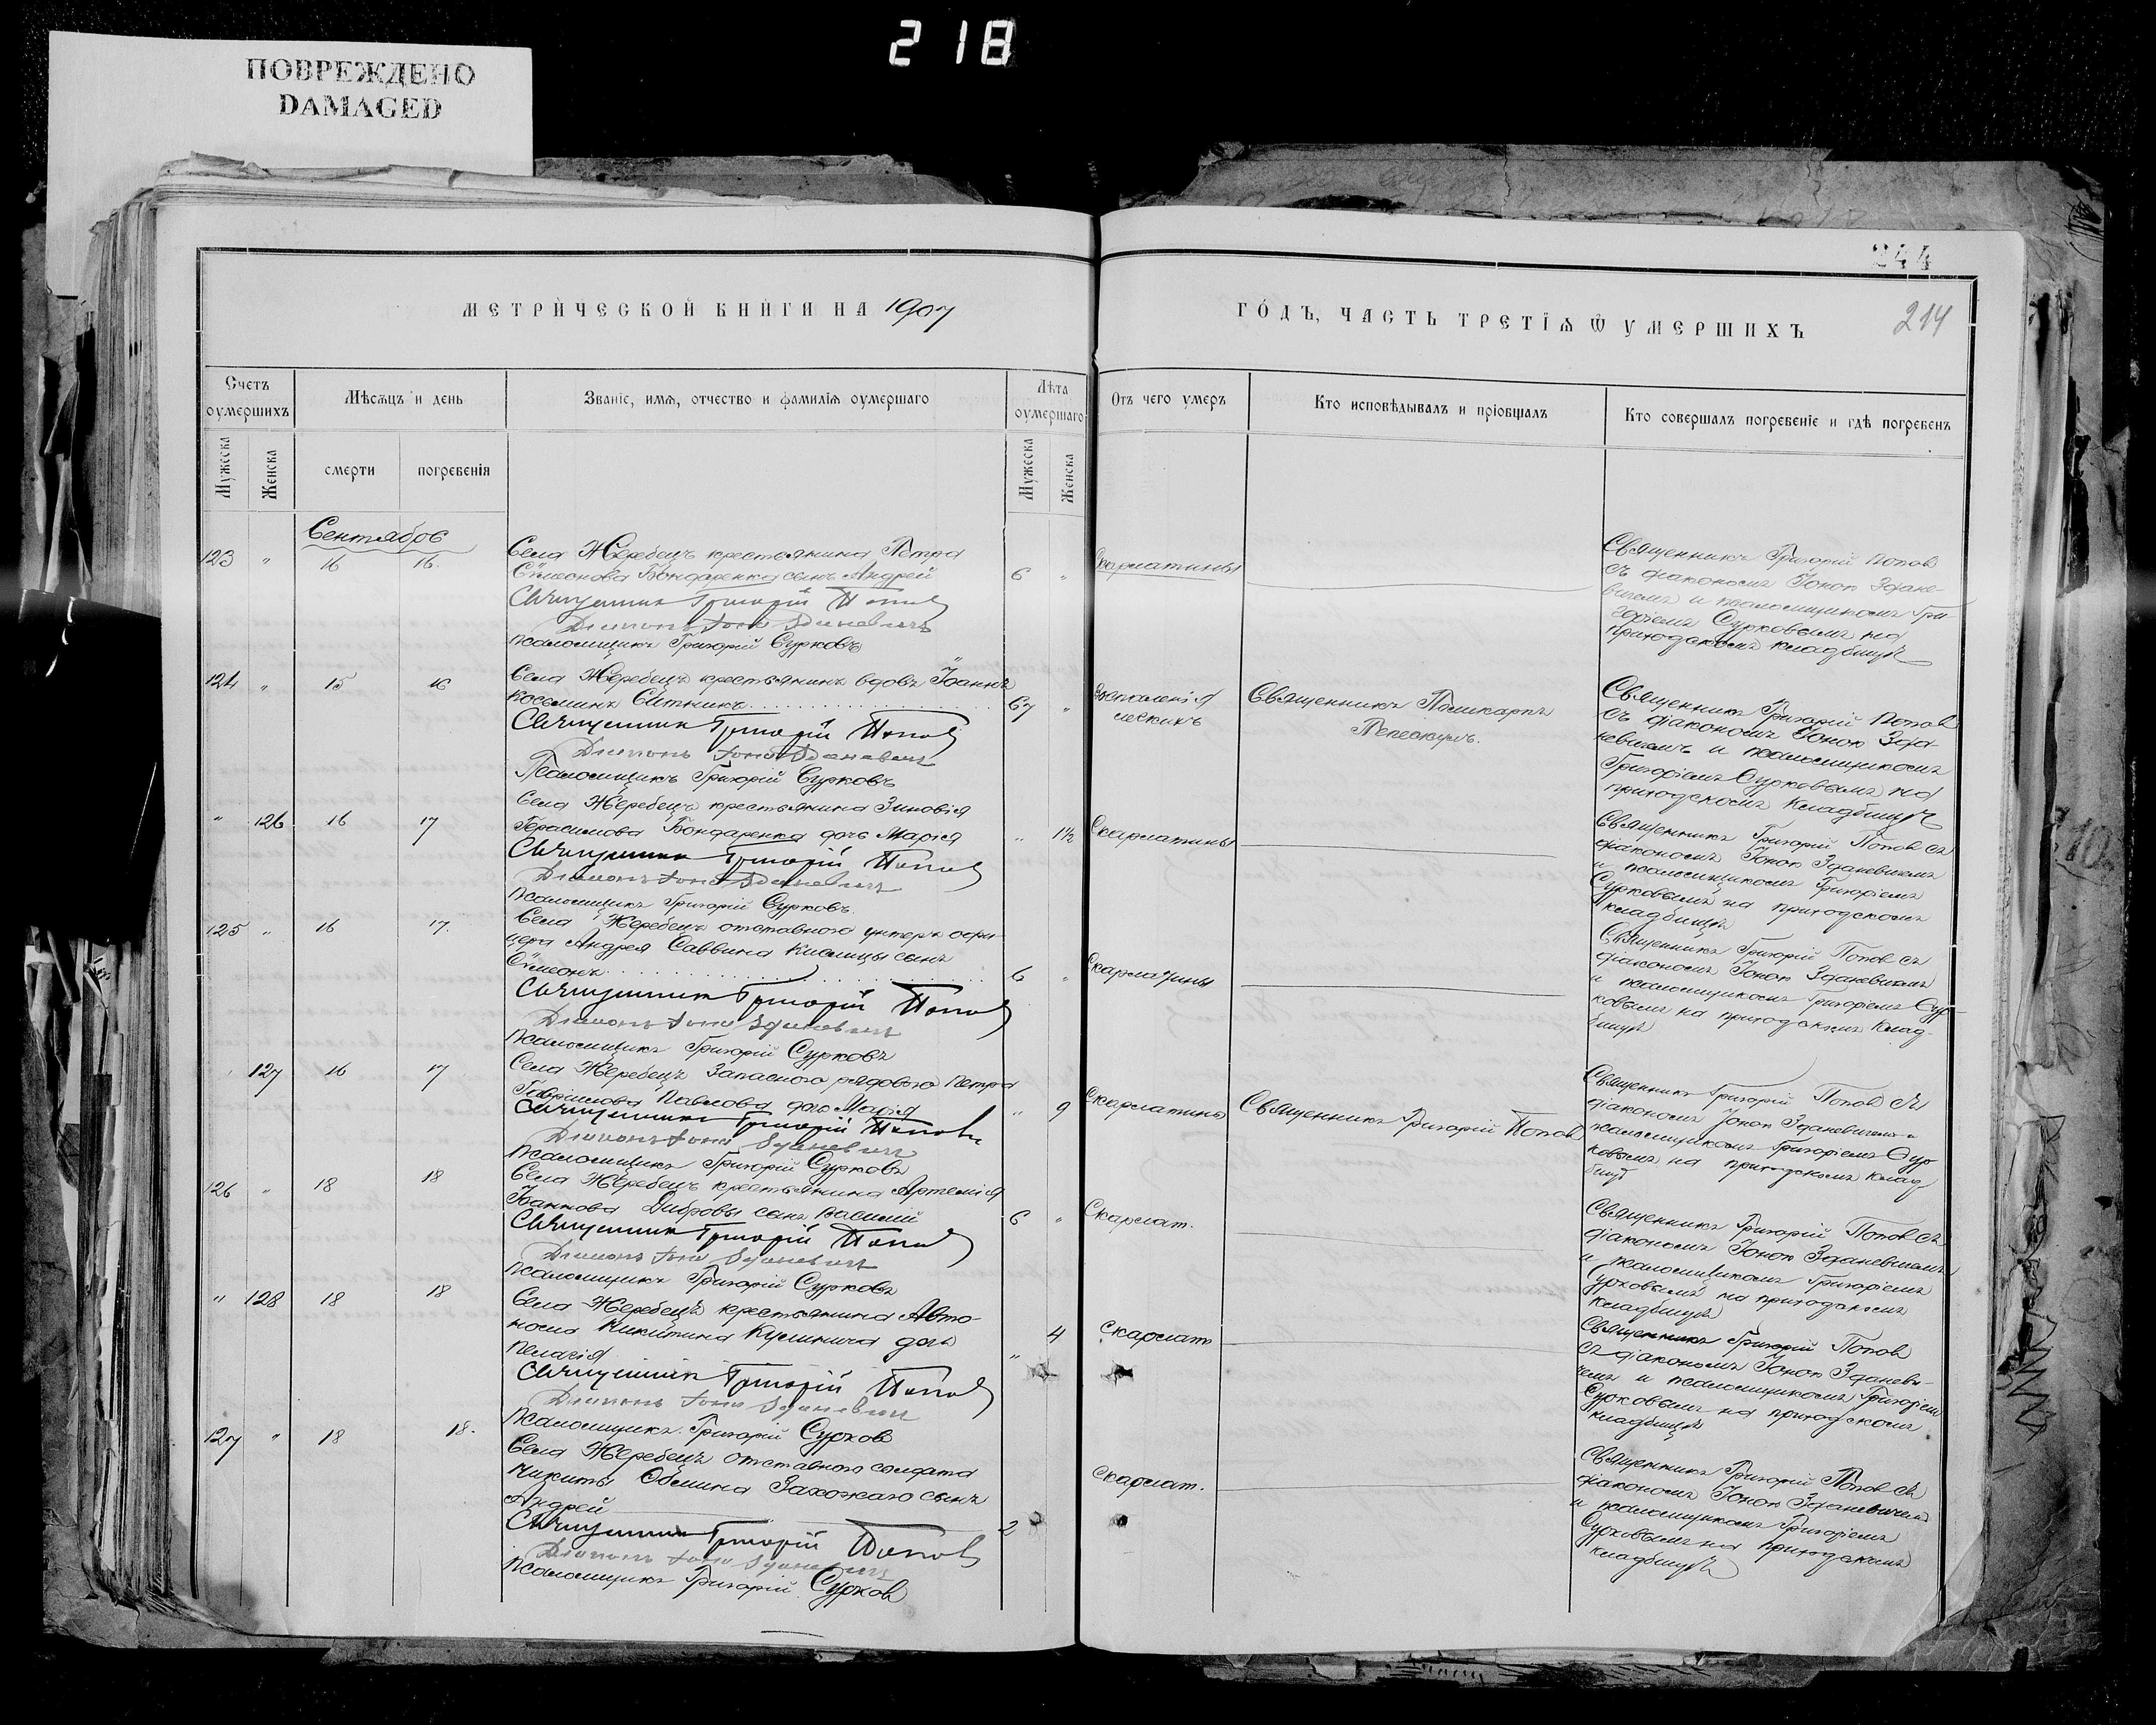 218
ПОВРЕЖДЕНО
DAMAGED
244
МЕТРИЧЕСКОЙ КНИГИ НА 1907
ГОДЪ, ЧАСТЬ ТРЕТІѦ Ѿ УМЕРШИХЪ
214
Счетъ оумершихъ
Мѣсѧцъ и день
Званіе, имѧ, отчество и фамиліѧ оумершаго
Лѣта оумершаго
Отъ чего умеръ
Кто исповѣдывалъ и пріобщалъ
Кто совершалъ погребеніе и гдѣ погребенъ
Мужеска
Женска
смерти
погребенія
Мужеска
Женска
Сентябрь
123 " 16 16.
Села Жеребецъ крестьянина Петра
Сѵмеонова Бондаренка сынъ Андрей
6 "
Скарлатины
Священникъ Григорій Попов
Діаконъ Іона Зданевичъ
Псаломщикъ Григорій Сурковъ
Священникъ Григорій Попов
съ діакономъ Іоною Здане-
вичемъ и псаломщикомъ Гри-
горіемъ Сурковымъ на
приходскомъ кладбищѣ
124 " 15 16
Села Жеребецъ крестьянинъ вдовъ Іоаннъ
Косьминъ Ситникъ
67 "
Воспаленія
легкихъ
Священникъ Поликарпъ
Священникъ Григорій Попов
Діаконъ Іона Зданевичъ
Псаломщикъ Григорій Сурковъ
Священникъ Григорій Попов
съ діакономъ Іоною Зда-
невичемъ и псаломщикомъ
Григоріемъ Сурковымъ на
приходскомъ кладбищѣ
" 126 16 17
Села Жеребецъ крестьянина Зиновія
Герасимова Бондаренка дочь Марія
" 1½
Скарлатины
Священникъ Григорій Попов
Діаконъ Іона Зданевичъ
Псаломщикъ Григорій Сурковъ.
Священникъ Григорій Попов съ
діакономъ Іоною Зданевичемъ
и псаломщикомъ Григоріемъ
Сурковымъ на приходскомъ
кладбищѣ
125 " 16 17.
Села Жеребецъ отставного унтеръ офи-
цера Андрея Саввина Кислицы сынъ
Сѵмеонъ
6 "
Скарлатины
Священникъ Григорій Попов
Діаконъ Іона Зданевичъ
Псаломщикъ Григорій Сурковъ
Священникъ Григорій Попов съ
діакономъ Іоною Зданевичемъ
и псаломщикомъ Григоріемъ Сур-
ковымъ на приходскомъ клад-
бищѣ
127 16 17
Села Жеребецъ запасного рядового Петра
Гавріилова Павлова дочь Марія
" 9
Скарлатины
Священникъ Григорій Попов
Священникъ Григорій Попов
Діаконъ Іона Зданевичъ
Псаломщикъ Григорій Сурковъ
Священникъ Григорій Попов съ
діакономъ Іоною Зданевичемъ и
псаломщикомъ Григоріемъ Сур
ковымъ на приходскомъ клад
бищѣ
126 " 18 18
Села Жеребецъ крестьянина Артемія
Іоаннова Дибровы сынъ Василій
6 "
Скарлат.
Священникъ Григорій Попов
Діаконъ Іона Зданевичъ
Псаломщикъ Григорій Сурковъ
Священникъ Григорій Попов съ
діакономъ Іоною Зданевичемъ
и псаломщикомъ Григоріемъ
Сурковымъ на приходскомъ
кладбищѣ
" 128 18 18
Села Жеребецъ крестьянина Авто-
нома Никитина Кулинича дочь
Пелагія
" 4
Скарлат
Священникъ Григорій Попов
Діаконъ Іона Зданевичъ
Псаломщикъ Григорій Сурков
Священникъ Григорій Попов
съ діакономъ Іоною Заневи-
чемъ и псаломщикомъ Григоріемъ
Сурковымъ на приходскомъ
кладбищѣ
127 " 18 18.
Села Жеребецъ отставного солдата
Никиты Захожаго сынъ
Андрей
2
Скарлат.
Священникъ Григорій Попов
Діаконъ Іона Зданевичъ
Псаломщикъ Григорій Сурков
Священникъ Григорій Попов съ
діакономъ Іоною Зданевичемъ
и псаломщикомъ Григоріемъ
Сурковымъ на приходскомъ
кладбищѣ